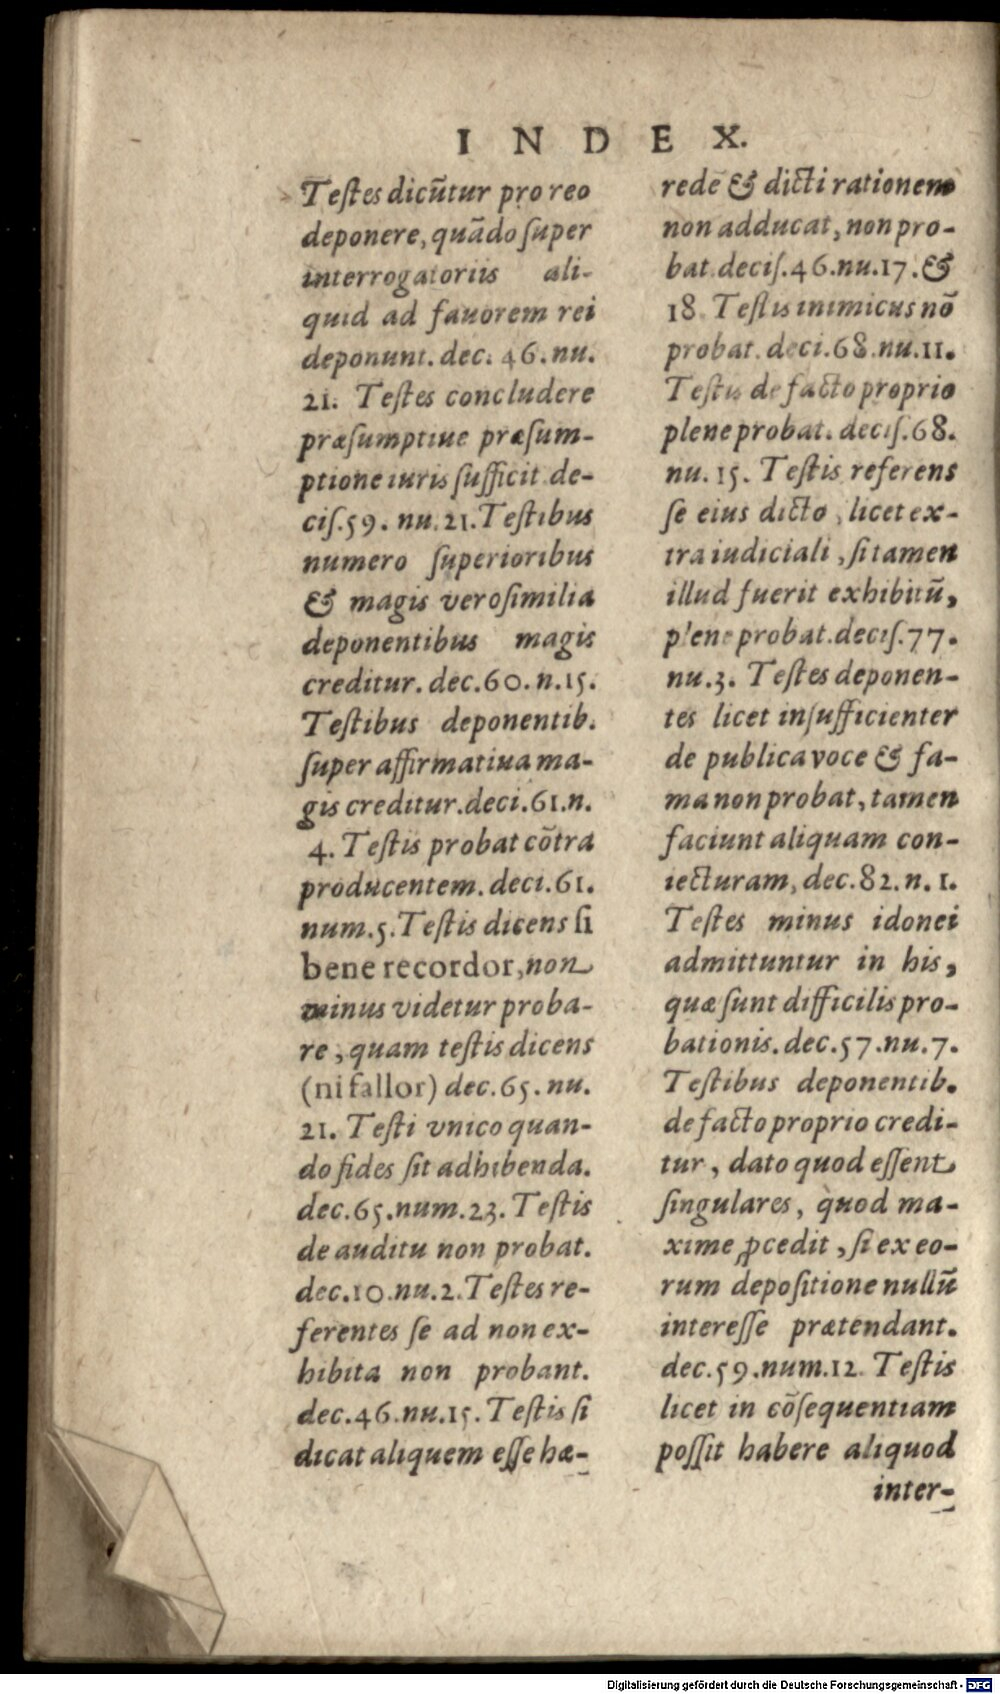 INDEX.
Teſtes dicũtur pro reo
deponere, quãdo ſuper
interrogatoriis ali-
quid ad fauorem rei
deponunt. dec. 46. nu.
21. Teſtes concludere
præſumptiue præſum-
ptione iuris ſufficit de-
ciſ. 59. nu. 21. Teſtibus
numero ſuperioribus
& magis veroſimilia
deponentibus magis
creditur. dec. 60. n. 15.
Teſtibus deponentib.
ſuper affirmatiua ma-
gis creditur. deci. 61. n.
4. Teſtis probat cõtra
producentem. deci. 61.
num. 5. Teſtis dicens ſi
bene recordor, non
minus videtur proba-
re, quam teſtis dicens
(ni fallor) dec. 65. nu.
21. Teſti vnico quan-
do fides ſit adhibenda.
dec. 65. num. 23. Teſtis
de auditu non probat.
dec. 10. nu. 2. Teſtes re-
ferentes ſe ad non ex-
hibita non probant.
dec. 46. nu. 15. Teſtis ſi
dicat aliquem eſſe hæ-
redẽ & dicti rationem
non adducat, non pro-
bat. deciſ. 46. nu. 17. &
18. Teſtis inimicus nõ
probat. deci. 68. nu. 11.
Teſtis de facto proprio
plene probat. deciſ. 68.
nu. 15. Teſtis referens
ſe eius dicto, licet ex-
tra iudiciali, ſi tamen
illud fuerit exhibitũ,
plene probat. deciſ. 77.
nu. 3. Teſtes deponen-
tes licet inſufficienter
de publica voce & fa-
ma non probat, tamen
faciunt aliquam con-
iecturam, dec. 82. n. 1.
Teſtes minus idonei
admittuntur in his,
quæ ſunt difficilis pro-
bationis. dec. 57. nu. 7.
Teſtibus deponentib.
de facto proprio credi-
tur, dato quod eſſent
ſingulares, quod ma-
xime ꝓcedit, ſi ex eo-
rum depoſitione nullũ
intereſſe prætendant.
dec. 59. num. 12. Teſtis
licet in cõſequentiam
poſſit habere aliquod
inter-
Digitalisierung gefördert durch die Deutsche Forschungsgemeinschaft - DFG